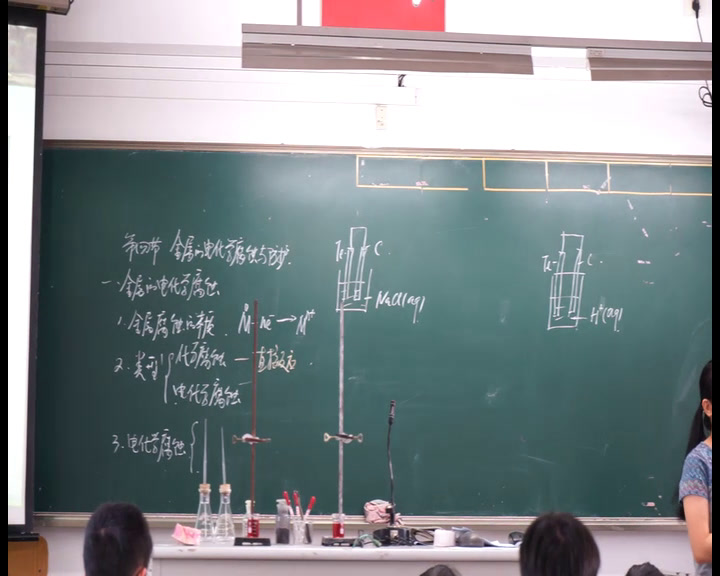 第四节 金属的电化学腐蚀与防护.
一.金属的电化学腐蚀
1.金属腐蚀的本质. M - ne⁻ → Mⁿ⁺
2.类型 { 化学腐蚀 — 直接反应.
电化学腐蚀
3.电化学腐蚀 {
Fe C
NaCl(aq)
Fe C
H⁺(aq)